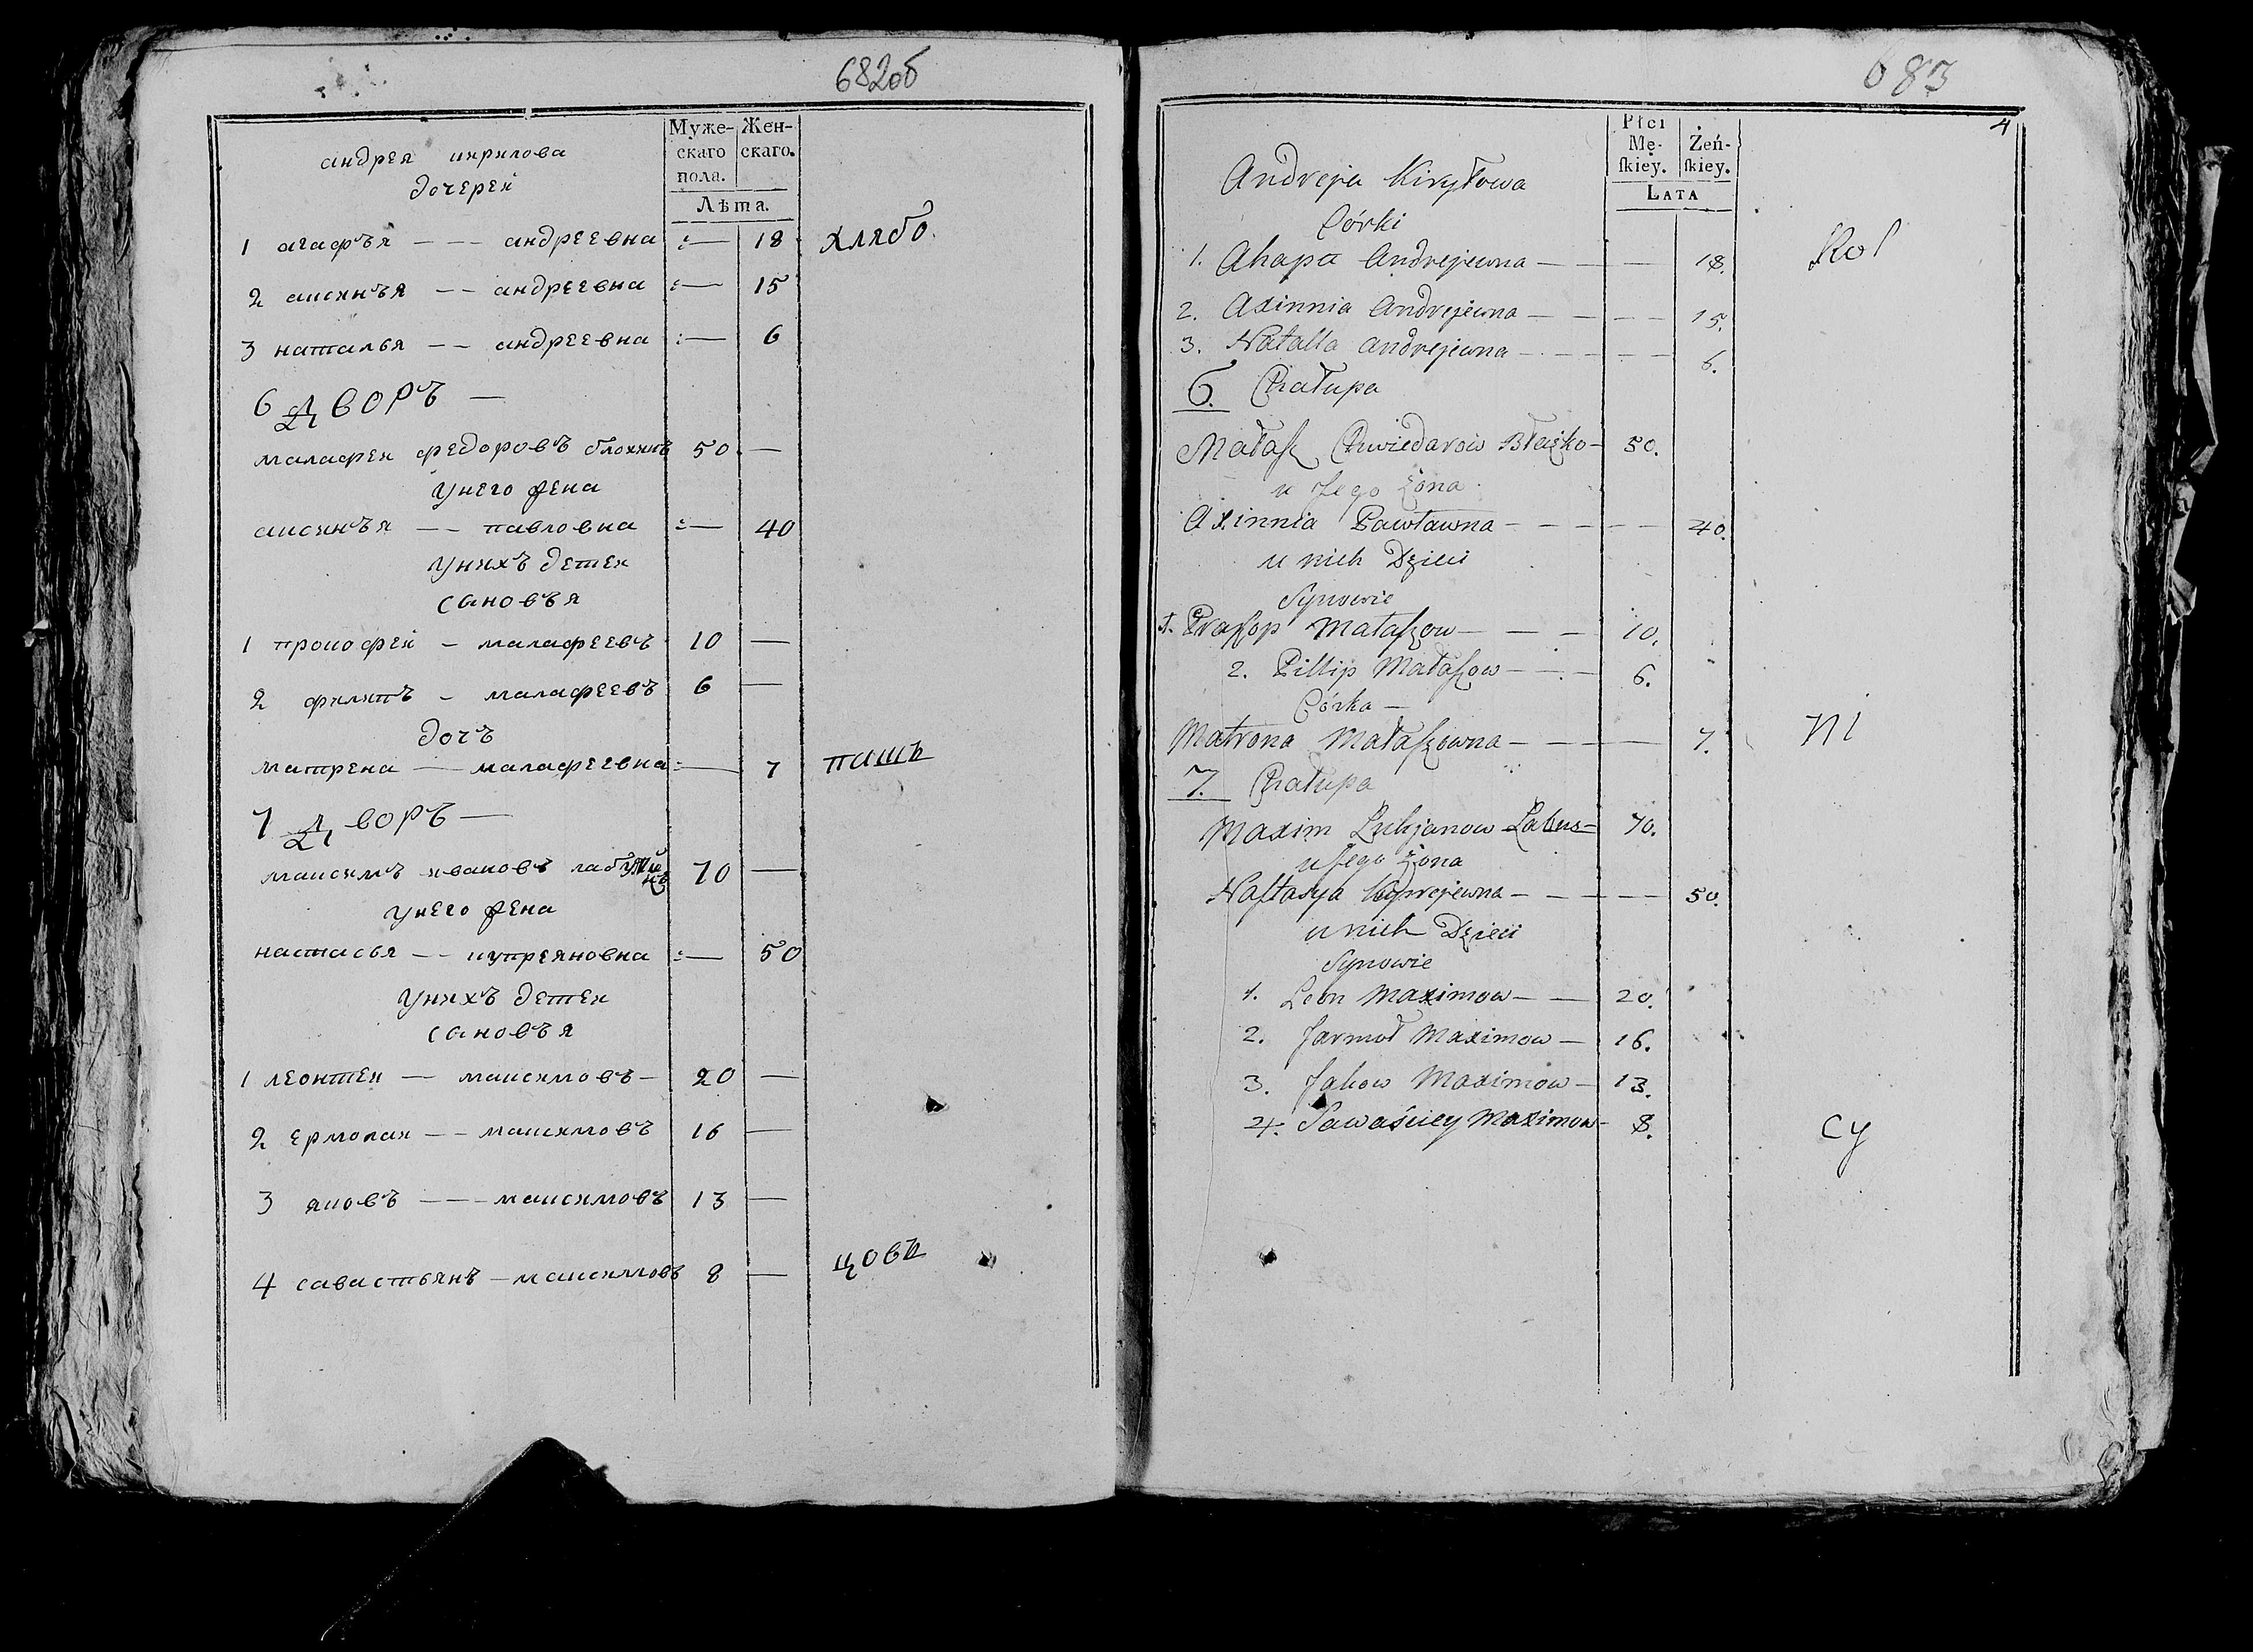 682об
Муже-
скаго
пола.
Жен-
скаго.
Лѣта.
андрея кирилова
дочерей
1 агафъя — — — андреевна :— 18 хлябо
2 аксинъя — — андреевна :— 15
3 наталья — — андреевна :— 6
6 дворъ —
малафеи федоровъ 50 —
унего жена
аксинъя — — павловна :— 40
унихъ детеи
сановъя
1 прокофеи — малафеевъ 10 —
2 филипъ — малафеевъ 6 —
дочъ
матрена — малафеевна :— 7 пашъ
7 дворъ —
максимъ ивановъ 70 —
унего жена
настасья — — купреяновна :— 50
унихъ детеи
сановъя
1 леонтеи — максимовъ — 20 —
2 ермолаи — — максимовъ 16 —
3 яковъ — — — максимовъ 13 —
4 савастьянъ — максимовъ 8 — цовъ
683
4
Płci
Mę-
skiey.
Żeń-
skiey.
LATA
Andreja Kiryłowa
Córki
1. Ahapa Andrejewna — — — 18. Rol
2. Axinnia Andrejewna — — — — 15.
3. Natalla Andrejewna — — — — — 6.
6. Chałupa
Małasz Chwiedarow Błażko — 50.
u Jego Żona
Axinnia Pawławna — — — — — 40.
u nich Dzieci
Synowie
1. Prakop Małaszow — — — 10.
2. Pillip Małaszow — — — 6.
Córka —
Matrona Małaszowna — — — 7. ni
7. Chałupa
Maxim Łukjanow Łabus — 70.
u Jego Żona
Nastasya Kuprejewna — — — — 50.
u nich Dzieci
Synowie
1. Leon Maximow — — 20.
2. Jarmoł Maximow — 16.
3. Jakow Maximow — 13.
4. Sawaściey Maximow — 8. cy